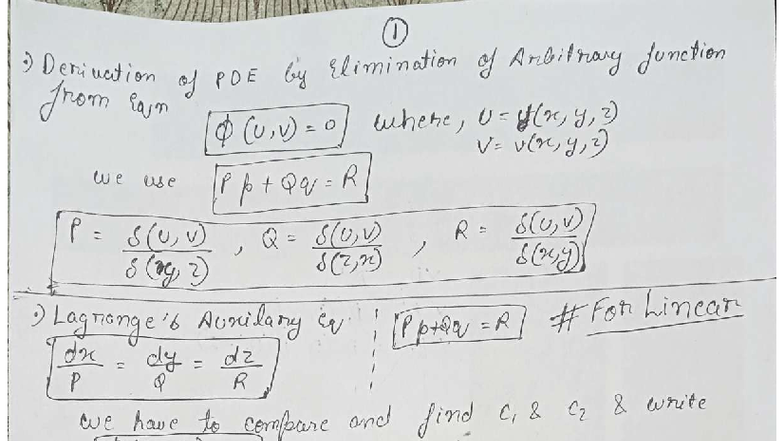 ①
•) Derivation of PDE by Elimination of Arbitrary function
from Eqn
ϕ (u,v) = 0 where, u = u(x, y, z)
v = v(x, y, z)
we use Pp + Qq = R
P = δ(u, v)/δ(y, z) , Q = δ(u, v)/δ(z, x) , R = δ(u, v)/δ(x, y)
•) Lagrange's Auxilary Eq. Pp+Qq = R # For Linear
dx/P = dy/Q = dz/R
we have to compare and find c₁ & c₂ & write